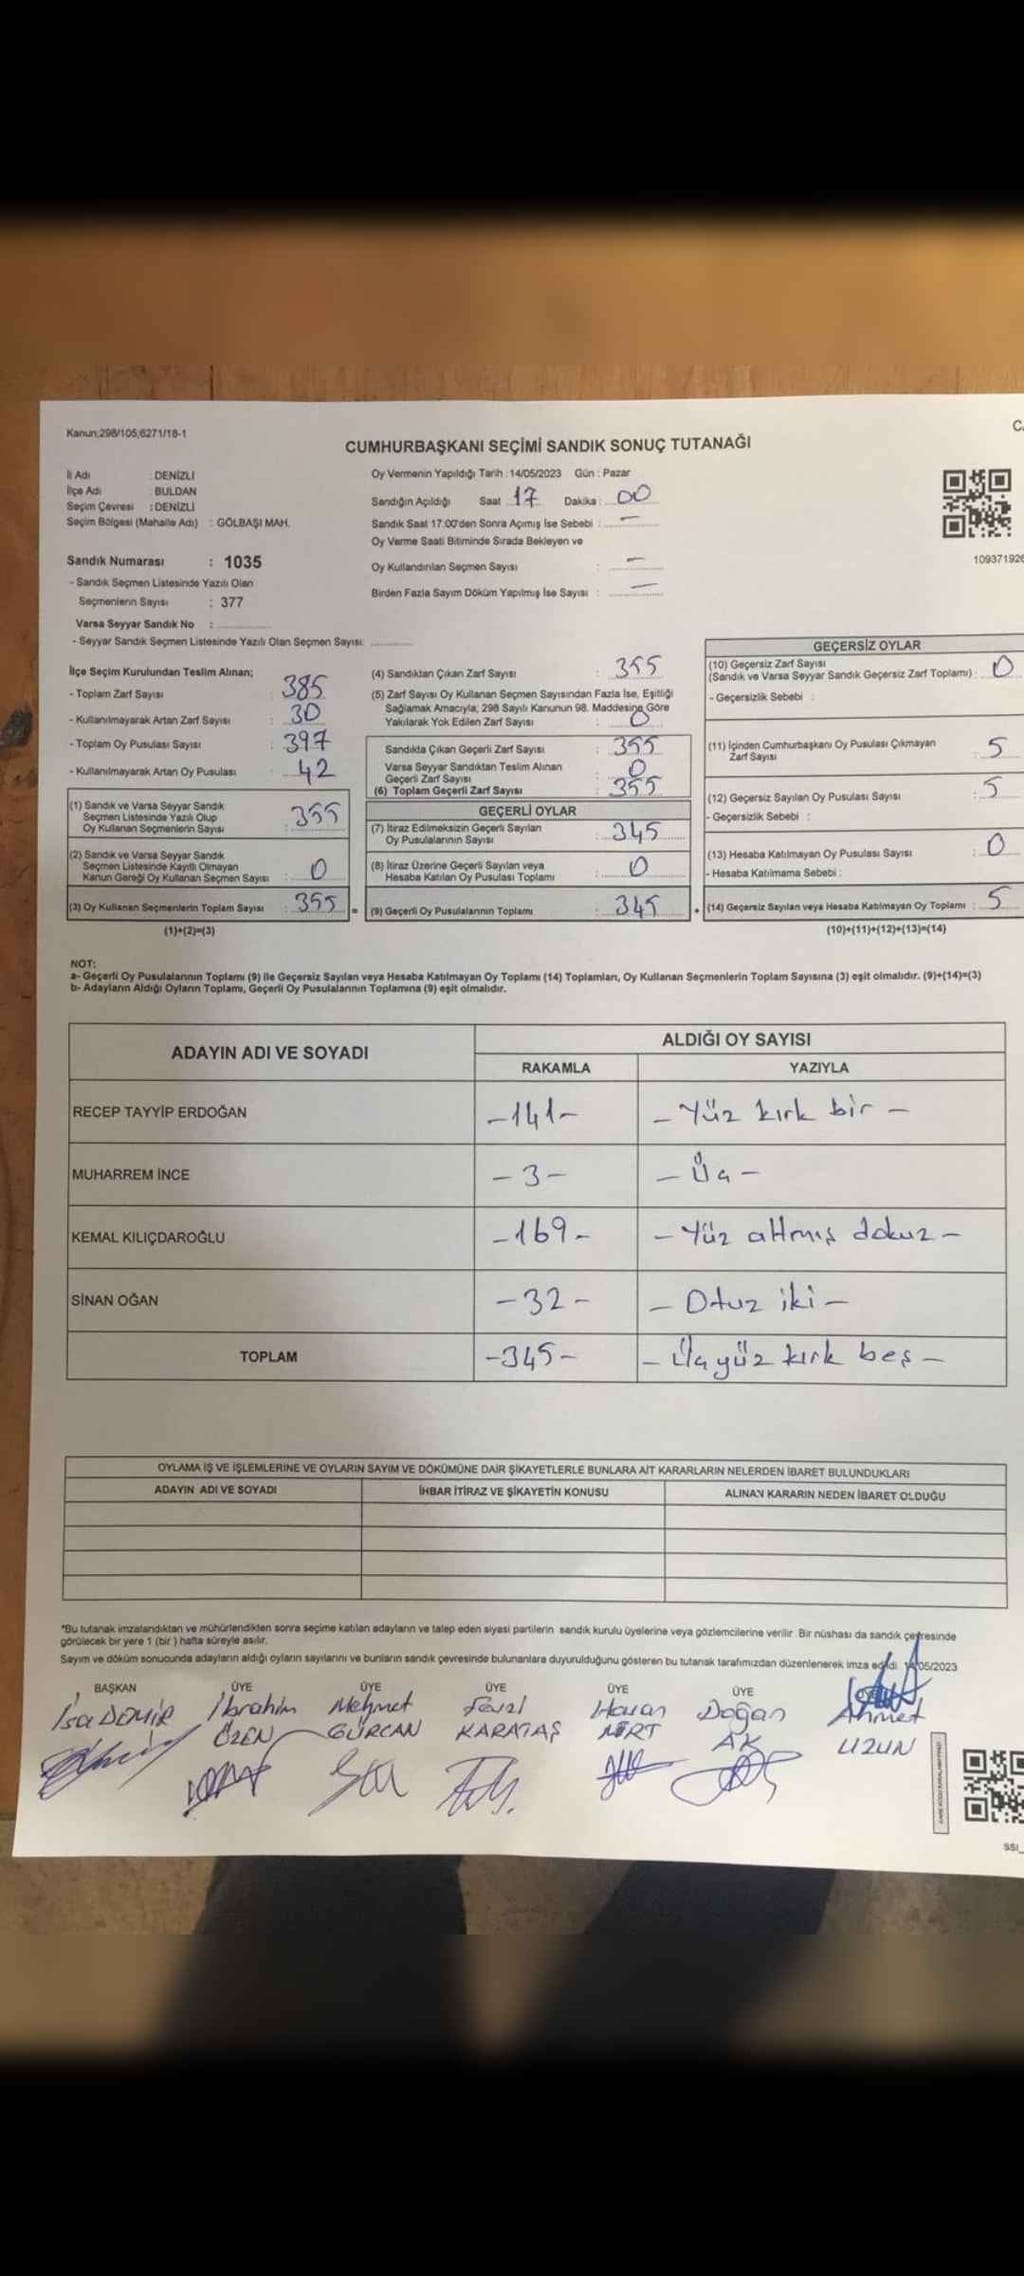 Kanun;298/105,6271/18-1
CUMHURBAŞKANI SEÇİMİ SANDIK SONUÇ TUTANAĞI
İl Adı : DENİZLİ
İlçe Adı : BULDAN
Seçim Çevresi : DENİZLİ
Seçim Bölgesi (Mahalle Adı) : GÖLBAŞI MAH.
Oy Vermenin Yapıldığı Tarih : 14/05/2023 Gün : Pazar
Sandığın Açıldığı Saat 17 Dakika : 00
Sandık Saat 17:00'den Sonra Açımış İse Sebebi : —
Oy Verme Saati Bitiminde Sırada Bekleyen ve
Oy Kullandırılan Seçmen Sayısı : —
Birden Fazla Sayım Döküm Yapılmış İse Sayısı : —
109371926
Sandık Numarası : 1035
- Sandık Seçmen Listesinde Yazılı Olan
Seçmenlerin Sayısı : 377
Varsa Seyyar Sandık No :
- Seyyar Sandık Seçmen Listesinde Yazılı Olan Seçmen Sayısı:
İlçe Seçim Kurulundan Teslim Alınan;
- Toplam Zarf Sayısı : 385
- Kullanılmayarak Artan Zarf Sayısı : 30
- Toplam Oy Pusulası Sayısı : 397
- Kullanılmayarak Artan Oy Pusulası : 42
(1) Sandık ve Varsa Seyyar Sandık
Seçmen Listesinde Yazılı Olup
Oy Kullanan Seçmenlerin Sayısı : 355
(2) Sandık ve Varsa Seyyar Sandık
Seçmen Listesinde Kayıtlı Olmayan
Kanun Gereği Oy Kullanan Seçmen Sayısı : 0
(3) Oy Kullanan Seçmenlerin Toplam Sayısı : 355 =
(1)+(2)=(3)
(4) Sandıktan Çıkan Zarf Sayısı : 355
(5) Zarf Sayısı Oy Kullanan Seçmen Sayısından Fazla İse, Eşitliği
Sağlamak Amacıyla; 298 Sayılı Kanunun 98. Maddesine Göre
Yakılarak Yok Edilen Zarf Sayısı : 0
Sandıkta Çıkan Geçerli Zarf Sayısı : 355
Varsa Seyyar Sandıktan Teslim Alınan
Geçerli Zarf Sayısı : 0
(6) Toplam Geçerli Zarf Sayısı : 355
GEÇERLİ OYLAR
(7) İtiraz Edilmeksizin Geçerli Sayılan
Oy Pusulalarının Sayısı : 345
(8) İtiraz Üzerine Geçerli Sayılan veya
Hesaba Katılan Oy Pusulası Toplamı : 0
(9) Geçerli Oy Pusulalarının Toplamı : 345 +
GEÇERSİZ OYLAR
(10) Geçersiz Zarf Sayısı
(Sandık ve Varsa Seyyar Sandık Geçersiz Zarf Toplamı) : 0
- Geçersizlik Sebebi :
(11) İçinden Cumhurbaşkanı Oy Pusulası Çıkmayan
Zarf Sayısı : 5
(12) Geçersiz Sayılan Oy Pusulası Sayısı : 5
- Geçersizlik Sebebi :
(13) Hesaba Katılmayan Oy Pusulası Sayısı : 0
- Hesaba Katılmama Sebebi :
(14) Geçersiz Sayılan veya Hesaba Katılmayan Oy Toplamı : 5
(10)+(11)+(12)+(13)=(14)
NOT:
a- Geçerli Oy Pusulalarının Toplamı (9) ile Geçersiz Sayılan veya Hesaba Katılmayan Oy Toplamı (14) Toplamları, Oy Kullanan Seçmenlerin Toplam Sayısına (3) eşit olmalıdır. (9)+(14)=(3)
b- Adayların Aldığı Oyların Toplamı, Geçerli Oy Pusulalarının Toplamına (9) eşit olmalıdır.
ADAYIN ADI VE SOYADI
ALDIĞI OY SAYISI
RAKAMLA YAZIYLA
RECEP TAYYİP ERDOĞAN -141- - Yüz kırk bir -
MUHARREM İNCE -3- - Üç -
KEMAL KILIÇDAROĞLU -169- - Yüz altmış dokuz -
SİNAN OĞAN -32- - Otuz iki -
TOPLAM -345- - Üçyüz kırk beş -
OYLAMA İŞ VE İŞLEMLERİNE VE OYLARIN SAYIM VE DÖKÜMÜNE DAİR ŞİKAYETLERLE BUNLARA AİT KARARLARIN NELERDEN İBARET BULUNDUKLARI
ADAYIN ADI VE SOYADI İHBAR İTİRAZ VE ŞİKAYETİN KONUSU ALINAN KARARIN NEDEN İBARET OLDUĞU
*Bu tutanak imzalandıktan ve mühürlendikten sonra seçime katılan adayların ve talep eden siyasi partilerin sandık kurulu üyelerine veya gözlemcilerine verilir. Bir nüshası da sandık çevresinde
görülecek bir yere 1 (bir ) hafta süreyle asılır.
Sayım ve döküm sonucunda adayların aldığı oyların sayılarını ve bunların sandık çevresinde bulunanlara duyurulduğunu gösteren bu tutanak tarafımızdan düzenlenerek imza edildi. 14/05/2023
BAŞKAN ÜYE ÜYE ÜYE ÜYE ÜYE
İsa DEMİR İbrahim Mehmet Fevzi Hasan Doğan Ahmet
ÖZEN GÜRCAN KARATAŞ MERT AK UZUN